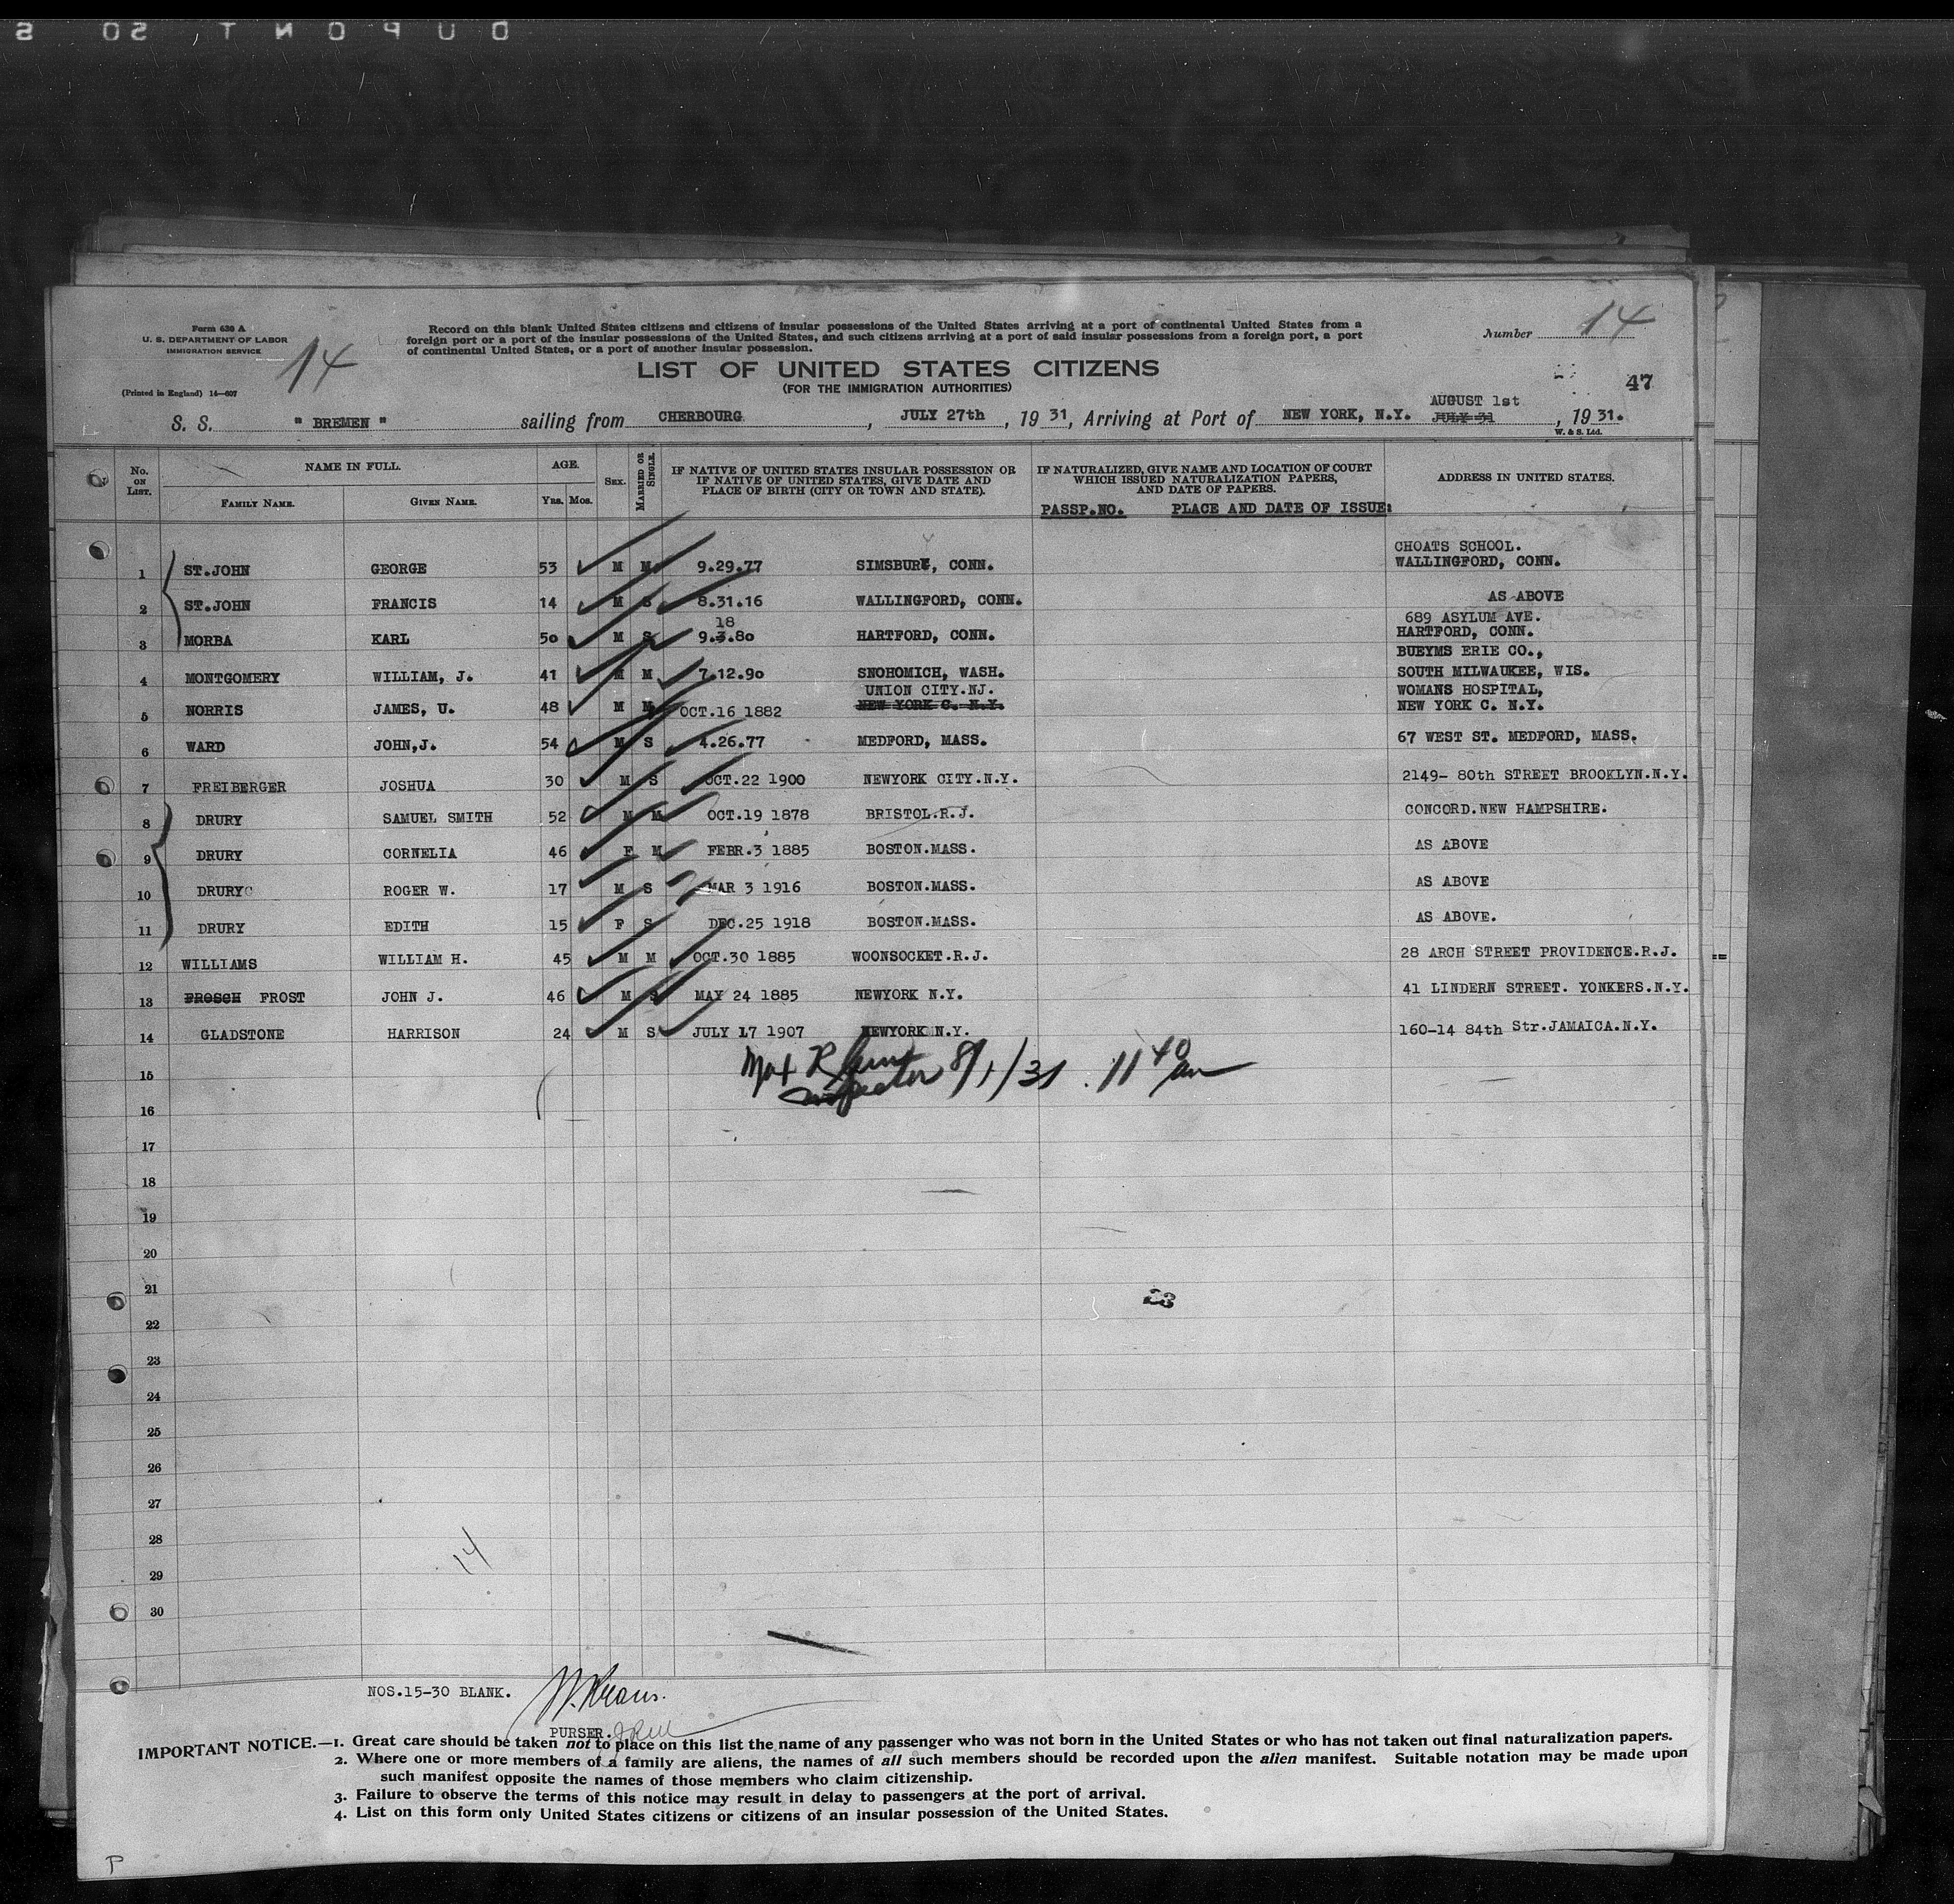 DUPONT, SO S
Form 630 A
U. S. DEPARTMENT OF LABOR
IMMIGRATION SERVICE
(Printed in England) 14—607
14
Record on this blank United States citizens and citizens of insular possessions of the United States arriving at a port of continental United States from a
foreign port or a port of the insular possessions of the United States, and such citizens arriving at a port of said insular possessions from a foreign port, a port
of continental United States, or a port of another insular possession.
Number 14
LIST OF UNITED STATES CITIZENS
(FOR THE IMMIGRATION AUTHORITIES)
47
AUGUST 1st
S. S. " BREMEN " sailing from CHERBOURG, JULY 27th, 19 31, Arriving at Port of NEW YORK, N.Y. JULY 31, 19 31.
W. & S. Ltd.
No. ON LIST.
NAME IN FULL.
FAMILY NAME. GIVEN NAME.
AGE.
YRS. MOS.
SEX.
MARRIED OR SINGLE.
IF NATIVE OF UNITED STATES INSULAR POSSESSION OR
IF NATIVE OF UNITED STATES, GIVE DATE AND
PLACE OF BIRTH (CITY OR TOWN AND STATE).
IF NATURALIZED, GIVE NAME AND LOCATION OF COURT
WHICH ISSUED NATURALIZATION PAPERS,
AND DATE OF PAPERS.
PASSP.NO. PLACE AND DATE OF ISSUE:
ADDRESS IN UNITED STATES.
CHOATS SCHOOL.
1 ST.JOHN GEORGE 53 M M 9.29.77 SIMSBURY, CONN. WALLINGFORD, CONN.
2 ST.JOHN FRANCIS 14 M S 8.31.16 WALLINGFORD, CONN. AS ABOVE
18 689 ASYLUM AVE.
3 MORBA KARL 50 M S 9.3.80 HARTFORD, CONN. HARTFORD, CONN.
BUEYMS ERIE CO.,
4 MONTGOMERY WILLIAM, J. 41 M M 7.12.90 SNOHOMICH, WASH. SOUTH MILWAUKEE, WIS.
UNION CITY.NJ. WOMANS HOSPITAL,
5 NORRIS JAMES, U. 48 M M OCT.16 1882 NEW YORK C. N.Y. NEW YORK C. N.Y.
6 WARD JOHN,J. 54 M S 4.26.77 MEDFORD, MASS. 67 WEST ST. MEDFORD, MASS.
7 FREIBERGER JOSHUA 30 M S OCT.22 1900 NEWYORK CITY.N.Y. 2149- 80th STREET BROOKLYN.N.Y.
8 DRURY SAMUEL SMITH 52 M M OCT.19 1878 BRISTOL.R.J. CONCORD.NEW HAMPSHIRE.
9 DRURY CORNELIA 46 F M FEBR.3 1885 BOSTON.MASS. AS ABOVE
10 DRURYC ROGER W. 17 M S MAR 3 1916 BOSTON.MASS. AS ABOVE
11 DRURY EDITH 15 F S DEC.25 1918 BOSTON.MASS. AS ABOVE.
12 WILLIAMS WILLIAM H. 45 M M OCT.30 1885 WOONSOCKET.R.J. 28 ARCH STREET PROVIDENCE.R.J.
13 FROSCH FROST JOHN J. 46 M S MAY 24 1885 NEWYORK N.Y. 41 LINDERN STREET. YONKERS.N.Y.
14 GLADSTONE HARRISON 24 M S JULY 17 1907 NEWYORK N.Y. 160-14 84th Str.JAMAICA.N.Y.
15
Inspector 8/1/31. 11 40 am
16
17
18
19
20
21
23
22
23
24
25
26
27
28
14
29
30
NOS.15-30 BLANK.
PURSER.
IMPORTANT NOTICE.—1. Great care should be taken not to place on this list the name of any passenger who was not born in the United States or who has not taken out final naturalization papers.
2. Where one or more members of a family are aliens, the names of all such members should be recorded upon the alien manifest. Suitable notation may be made upon
such manifest opposite the names of those members who claim citizenship.
3. Failure to observe the terms of this notice may result in delay to passengers at the port of arrival.
4. List on this form only United States citizens or citizens of an insular possession of the United States.